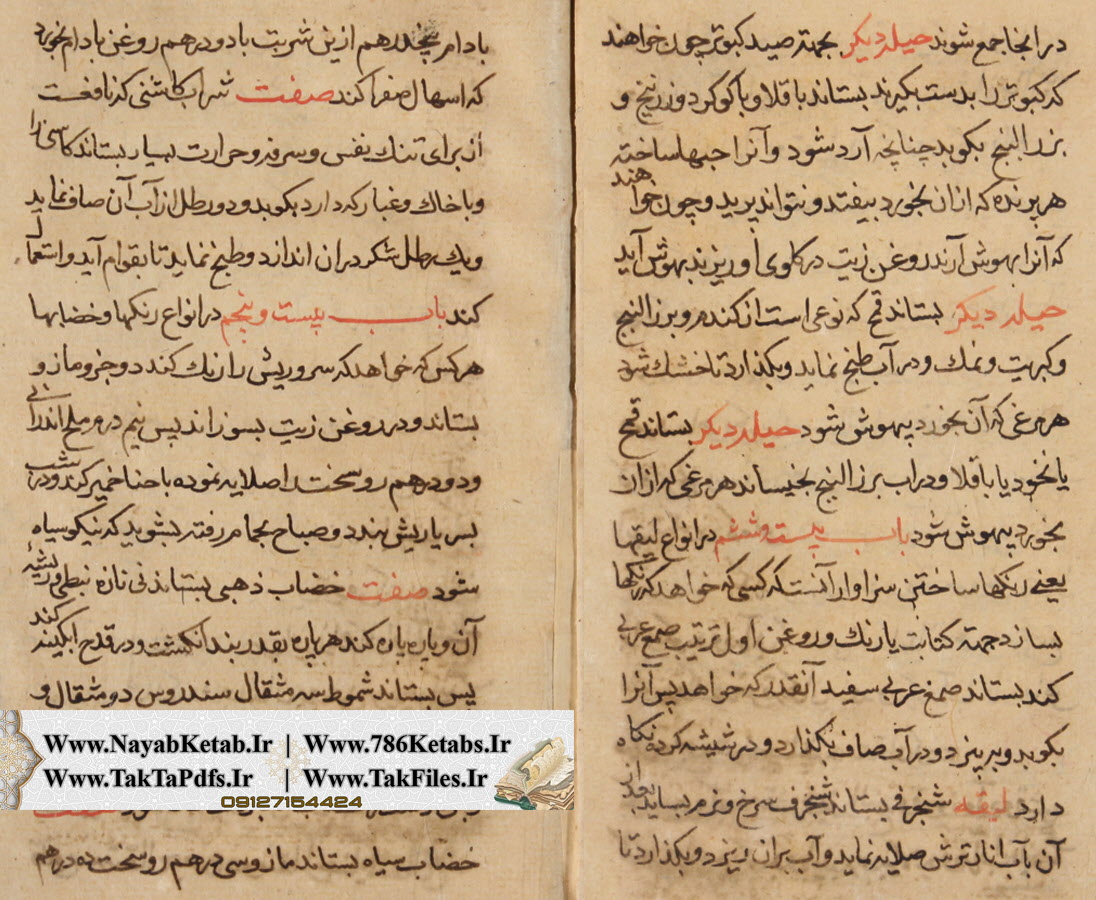 در انجا جمع شوند حیله دیکر بجهة صید کبوتر چون خواهند
که کبوتر را بدست بکیرند بستاند باقلا و با کوکرد و زرنیخ و
بزر البنج بکوبد چنانچه آرد شود و آنرا حبها ساخته
هر پرنده که ازان بخورد بیفتد و نتواند پرید و چون خواهند
که آنرا بهوش آرند روغن زیت در کلوی او ریزند بهوش آید
حیله دیکر بستاند قمح که نوعی است از کندم و بزر البنج
و کبریت و نمک و در آب طبخ نماید و بکذارد تا خشک شود
هر مرغی که آن بخورد بیهوش شود حیله دیکر بستاند قمح
یا نخود یا باقلا و در اب بزر البنج بخیساند هر مرغی که ازان
بخورد بیهوش شود باب بیست و ششم در انواع لیقها
یعنی رنکها ساختن سزاوار آنست که کسی که خواهد که رنکها
بسازد جهة کتابت یا رنک و روغن اول ترتیب صمغ عربی
کند بستاند صمغ عربی سفید آنقدر که خواهد پس آنرا
بکوبد و بپزد و در آب صاف بکذارد و در شیشه کرده نکاه
دارد لیقه شنجرفی بستاند شنجرف سرخ و نرم بساید بعد از
آن بآب انار ترش صلایه نماید و آب بران ریزد و بکذارد تا
بادام پنجدرهم ازین شربت با دو درهم روغن بادام بخورد
که اسهال صفرا کند صفت شراب کاشنی که نافعست
از برای تنک نفس و سرفه و حرارت بسیار بستاند کاسنی را
و با خاک و غبار که دارد بکوبد و دو رطل از آب آن صاف نماید
و یک رطل شکر دران اندازد و طبخ نماید تا بقوام آید و استعمال
کند باب بیست و پنجم در انواع رنکها و خضابها
هر کس که خواهد که سر و ریش را رنک کند دو جزو مازو
بستاند و در روغن زیت بسوزاند پس نیم درم ملح اندرانی
و دو درهم روسخت را صلایه نموده با حنا خمیر کند و در شب
بس یا ریش بندد و صباح بحمام رفته بشوید که نیکو سیاه
شود صفت خضاب ذهبی بستاند نی تازه نبطی و ریشهٔ
آن و پاره پاره کند هر پاره بقدر بند انکشت و در قدح ابکینه کند
پس بستاند شموط سه مثقال سندروس دو مثقال و
Www.NayabKetab.Ir | Www.786Ketabs.Ir
Www.TakTaPdfs.Ir | Www.TakFiles.Ir
09127154424
خضاب سیاه بستاند مازو سی درهم روسخت ده درهم